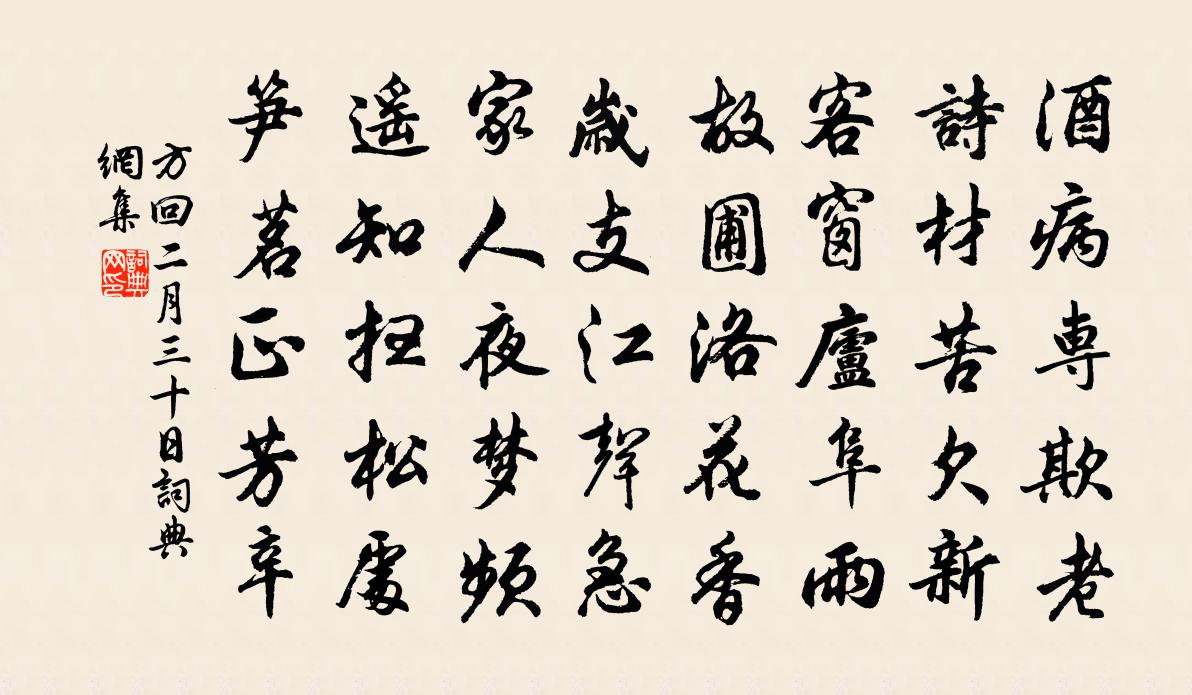 酒病専欺老
詩材苦欠新
客窗廬阜雨
故圃洛花春
歲支江聲急
家人夜梦頻
遥知掃松處
笋茗正芳辛
方回二月三十日詞典
網集
詞典
网印